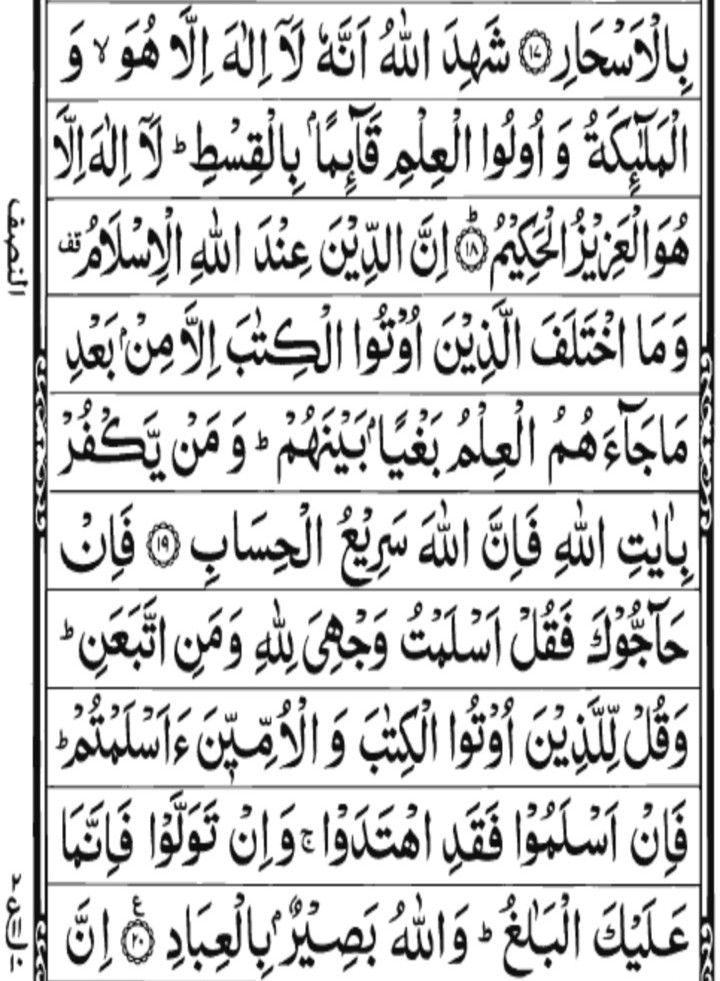 بِالْاَسْحَارِ ۝۱۷ شَهِدَ اللّٰهُ اَنَّهٗ لَاۤ اِلٰهَ اِلَّا هُوَ ۙ وَ
الْمَلٰٓئِكَةُ وَ اُولُوا الْعِلْمِ قَآىِٕمًۢا بِالْقِسْطِ ؕ لَاۤ اِلٰهَ اِلَّا
هُوَ الْعَزِيْزُ الْحَكِيْمُ ؕ۝۱۸ اِنَّ الدِّيْنَ عِنْدَ اللّٰهِ الْاِسْلَامُ قف
وَ مَا اخْتَلَفَ الَّذِيْنَ اُوْتُوا الْكِتٰبَ اِلَّا مِنْۢ بَعْدِ
مَا جَآءَهُمُ الْعِلْمُ بَغْيًۢا بَيْنَهُمْ ؕ وَ مَنْ يَّكْفُرْ
بِاٰيٰتِ اللّٰهِ فَاِنَّ اللّٰهَ سَرِيْعُ الْحِسَابِ ۝۱۹ فَاِنْ
حَآجُّوْكَ فَقُلْ اَسْلَمْتُ وَجْهِيَ لِلّٰهِ وَ مَنِ اتَّبَعَنِ ؕ
وَ قُلْ لِّلَّذِيْنَ اُوْتُوا الْكِتٰبَ وَ الْاُمِّيّٖنَ ءَاَسْلَمْتُمْ ؕ
فَاِنْ اَسْلَمُوْا فَقَدِ اهْتَدَوْا ۚ وَ اِنْ تَوَلَّوْا فَاِنَّمَا
عَلَيْكَ الْبَلٰغُ ؕ وَ اللّٰهُ بَصِيْرٌۢ بِالْعِبَادِ ۝۲۰ ع اِنَّ
النصف